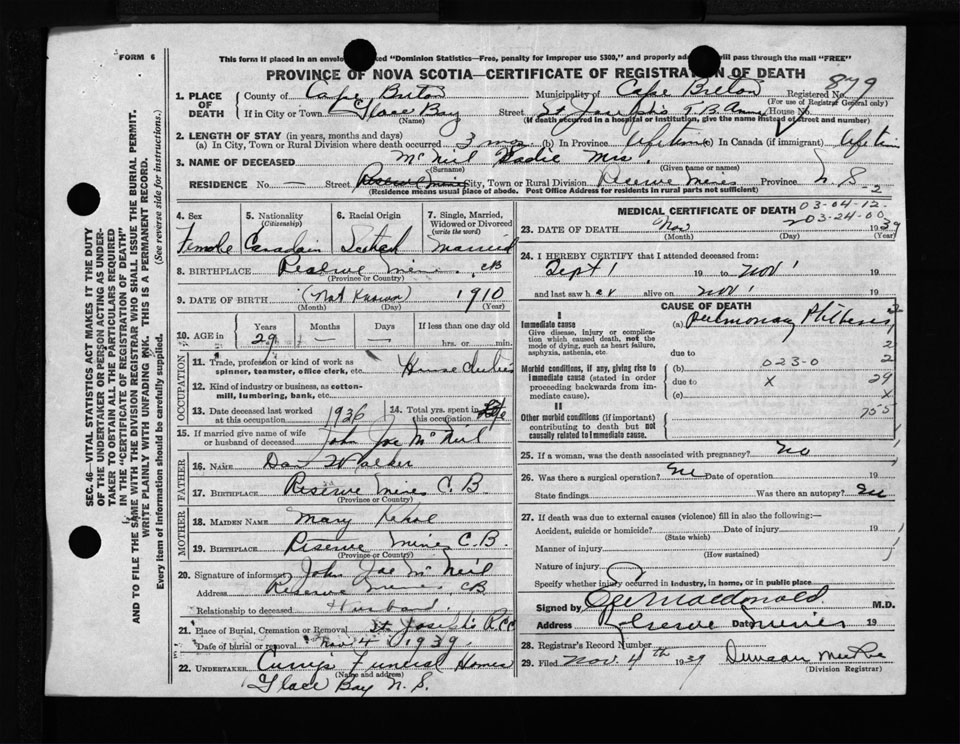 FORM 6
This form if placed in an envelo ked "Dominion Statistics—Free, penalty for improper use $300," and properly ad will pass through the mail "FREE"
PROVINCE OF NOVA SCOTIA—CERTIFICATE OF REGISTRATION OF DEATH
SEC. 46—VITAL STATISTICS ACT MAKES IT THE DUTY
OF THE UNDERTAKER OR PERSON ACTING AS UNDER-
TAKER TO OBTAIN ALL THE PARTICULARS REQUIRED
IN THE "CERTIFICATE OF REGISTRATION OF DEATH"
AND TO FILE THE SAME WITH THE DIVISION REGISTRAR WHO SHALL ISSUE THE BURIAL PERMIT.
WRITE PLAINLY WITH UNFADING INK. THIS IS A PERMANENT RECORD.
Every item of Information should be carefully supplied. (See reverse side for instructions.)
1. PLACE OF DEATH County of Cape Breton Municipality of Cape Breton Registered No. 879
(For use of Registrar General only)
If in City or Town Glace Bay Street St Joseph's T.B. Annex House No.
(Name) (If death occurred in a hospital or institution, give the name instead of street and number)
2. LENGTH OF STAY (in years, months and days)
(a) In City, Town or Rural Division where death occurred 3 mos (b) In Province lifetime (c) In Canada (if immigrant) lifetime
3. NAME OF DECEASED McNeil Sadie Mrs.
(Surname) (Given name or names)
RESIDENCE No. — Street Reserve Mines City, Town or Rural Division Reserve Mines Province N.S. -2
(Residence means usual place of abode. Post Office Address for residents in rural parts not sufficient)
4. Sex Female
5. Nationality (Citizenship) Canadain
6. Racial Origin Scotch
7. Single, Married, Widowed or Divorced (write the word) Married
8. BIRTHPLACE Reserve Mines, CB
(Province or Country)
9. DATE OF BIRTH (Not Known) 1910
(Month) (Day) (Year)
10. AGE in Years 29 Months — Days — If less than one day old hrs. or min.
OCCUPATION
11. Trade, profession or kind of work as spinner, teamster, office clerk, etc. House duties
12. Kind of industry or business, as cotton-mill, lumbering, bank, etc.
13. Date deceased last worked at this occupation 1936 14. Total yrs. spent in this occupation Life
15. If married give name of wife or husband of deceased John Joe McNeil
FATHER
16. NAME Dan Walker
17. BIRTHPLACE Reserve Mines C.B
(Province or Country)
MOTHER
18. MAIDEN NAME Mary
19. BIRTHPLACE Reserve Mines C.B.
(Province or Country)
20. Signature of informant John Joe McNeil
Address Reserve Mines, CB
Relationship to deceased Husband.
21. Place of Burial, Cremation or Removal St Joseph's R.C.C
Date of burial or removal Nov 4 1939
22. UNDERTAKER Curry's Funeral Homes
(Name and address)
Glace Bay N.S.
MEDICAL CERTIFICATE OF DEATH 03-04-12-
03-24-00
23. DATE OF DEATH Nov 2 1939
(Month) (Day) (Year)
24. I HEREBY CERTIFY that I attended deceased from:
Sept 1 19 to Nov 1 19
and last saw her alive on Nov 1 19
CAUSE OF DEATH
I
Immediate cause (a) Pulmonary Phthisis
Give disease, injury or complication which caused death, not the mode of dying, such as heart failure, asphyxia, asthenia, etc.
due to
Morbid conditions, if any, giving rise to immediate cause (stated in order proceeding backwards from immediate cause). (b) 023-0
due to X
(c)
II
Other morbid conditions (if important) contributing to death but not causally related to immediate cause.
2
2
29
X
755
25. If a woman, was the death associated with pregnancy? No
26. Was there a surgical operation? No Date of operation 19
State findings Was there an autopsy? No
27. If death was due to external causes (violence) fill in also the following:—
Accident, suicide or homicide? Date of injury 19
(State which)
Manner of injury
(How sustained)
Nature of injury
Specify whether injury occurred in industry, in home, or in public place
Signed by Macdonald M.D.
Address Reserve Mines Date 19
28. Registrar's Record Number
29. Filed Nov. 4th 1939 Duncan
(Division Registrar)